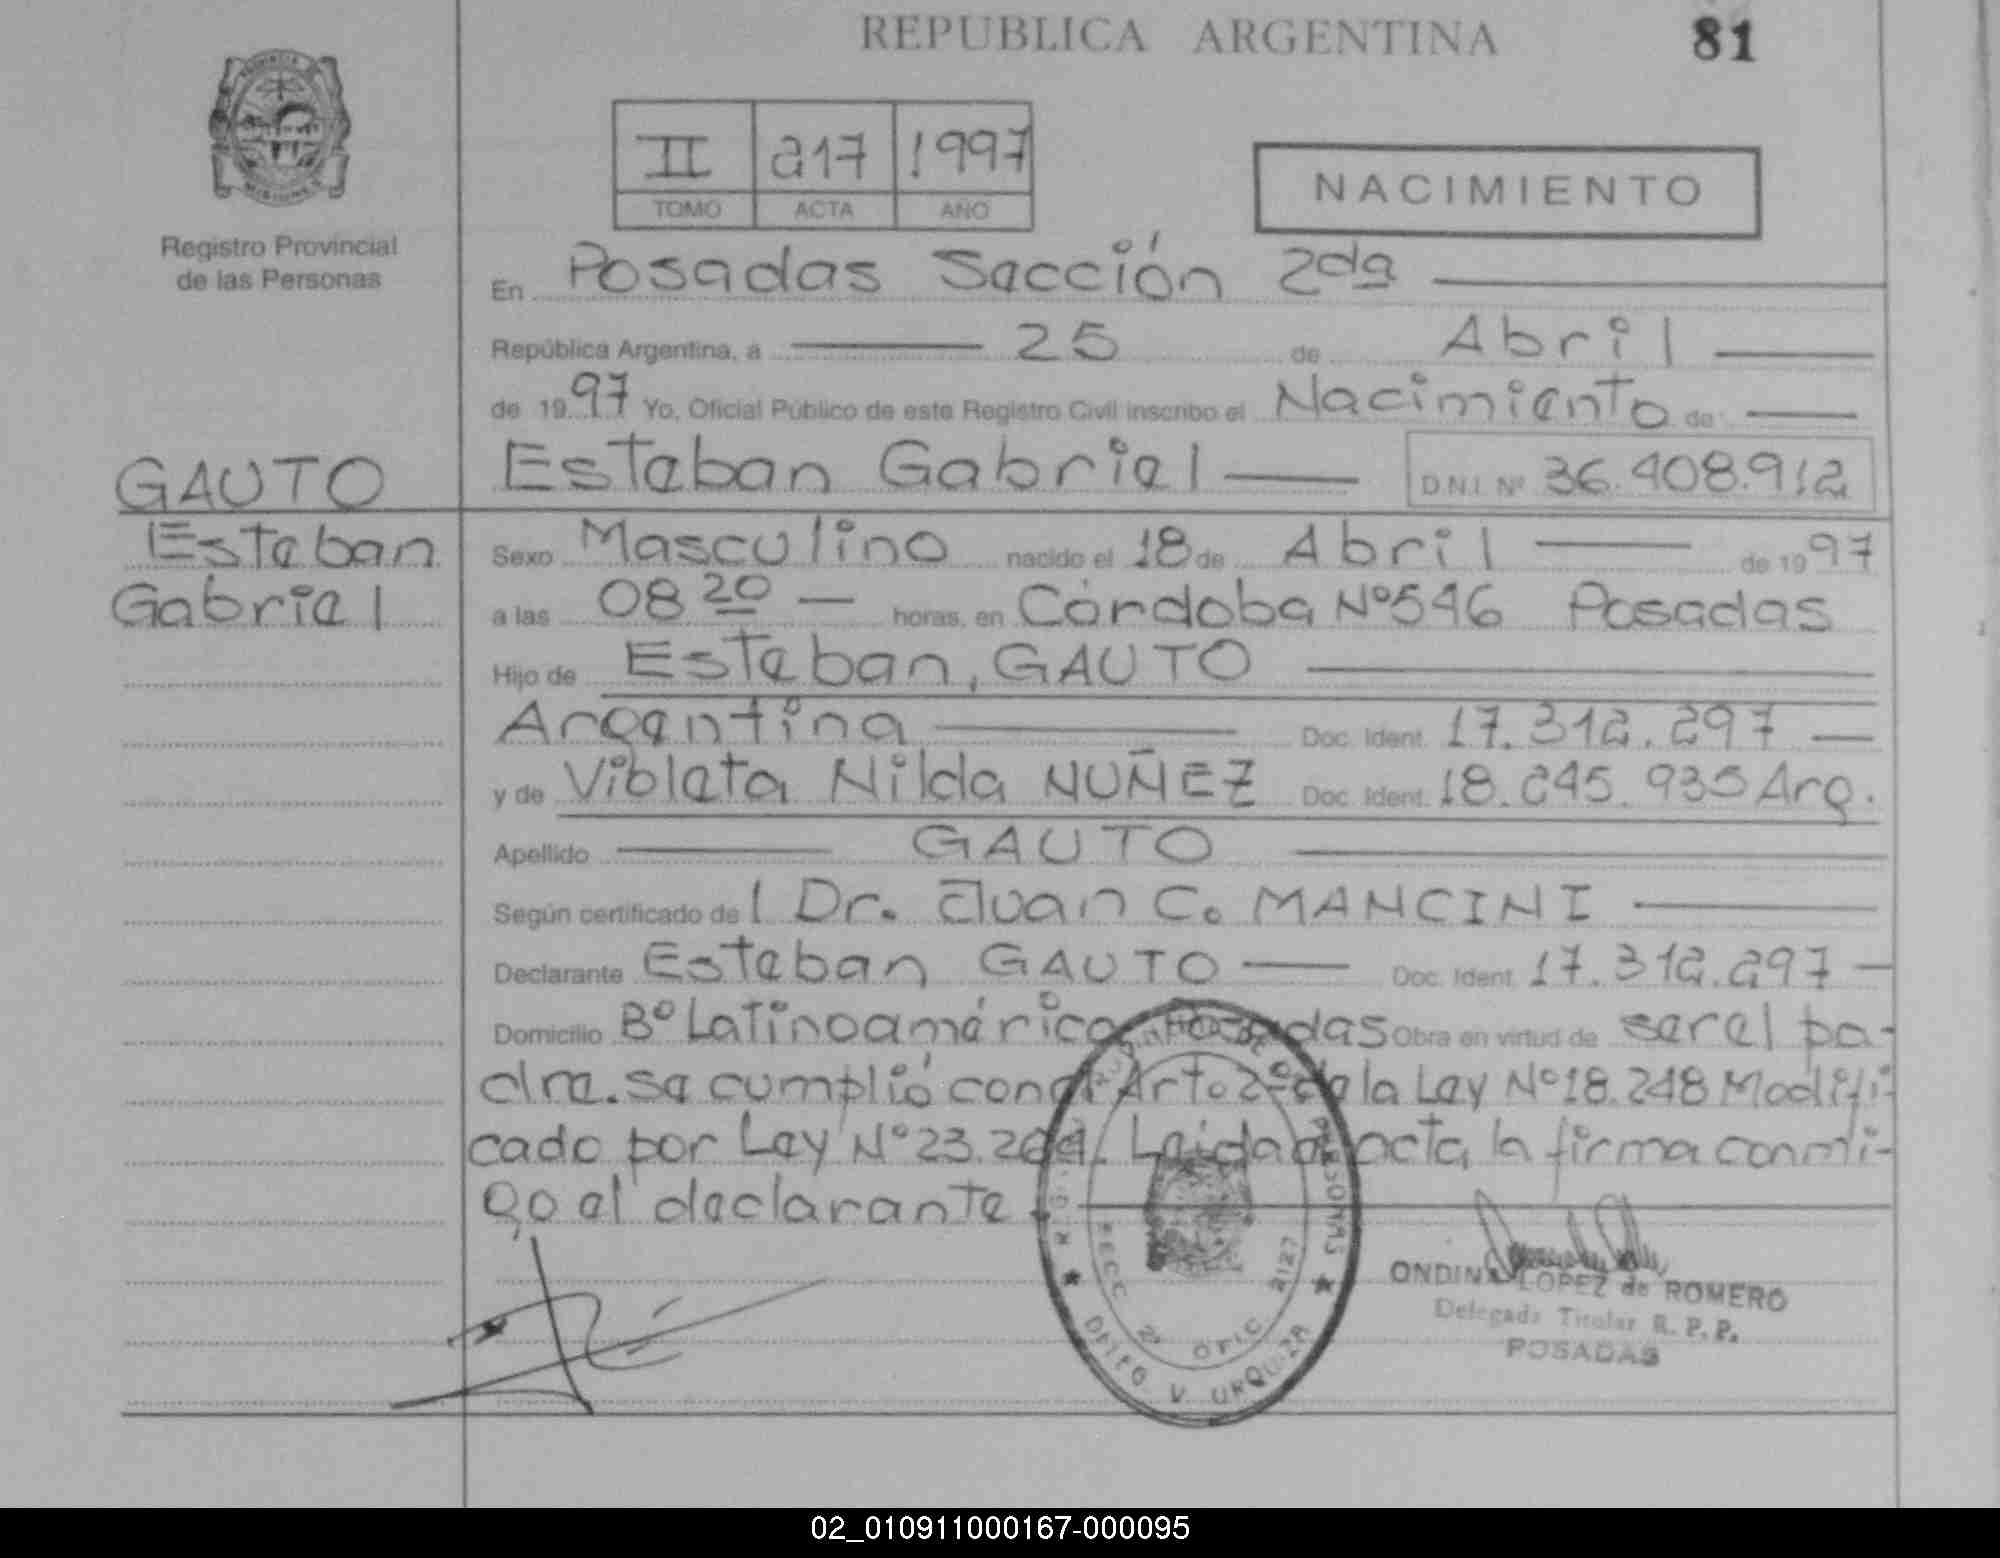 REPUBLICA ARGENTINA 81
II 217 1997
TOMO ACTA AÑO
NACIMIENTO
Registro Provincial
de las Personas
En Posadas Sección 2da
República Argentina, a 25 de Abril
de 1997 Yo, Oficial Público de este Registro Civil inscribo el Nacimiento de
GAUTO Esteban Gabriel D.N.I. Nº 36.408.912
Esteban
Gabriel
Sexo Masculino nacido el 18 de Abril de 1997
a las 08 20 horas, en Córdoba Nº 546 Posadas
Hijo de Esteban, GAUTO
Argentina Doc. Ident. 17.312.297
y de Violeta Nilda NUÑEZ Doc. Ident. 18.245.935 Arg.
Apellido GAUTO
Según certificado de l Dr. Juan C. MANCINI
Declarante Esteban GAUTO Doc. Ident. 17.312.297
Domicilio Bº Latinoamérica Posadas Obra en virtud de ser el pa-
dre. se cumplió con el Arto 2º de la Ley Nº 18.248 Modifi-
cado por Ley Nº 23.264. Leida el acta la firma conmi-
go el declarante
ONDINA LOPEZ de ROMERO
Delegada Titular R. P. P.
POSADAS
SECC 2ª OFIC 2127
DPTO V URQUIZA
02_010911000167-000095